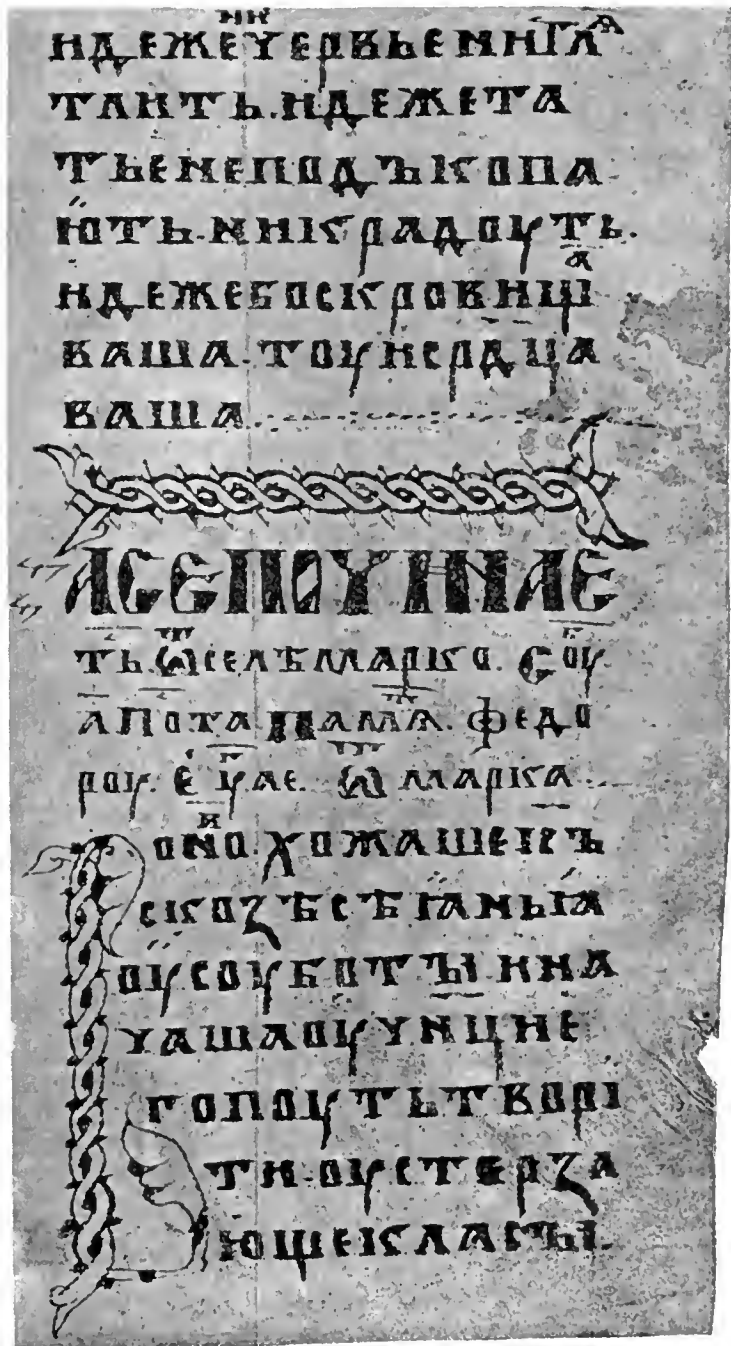 идеженичервьенитлѧ
тлить.идежета
тьенеподъкопа
ють.никрадоуть.
идежебоскровища
ваша.тоуисрдца
ваша
асепоучинае
ть.ѿселѣмарко. соу
а пота памѧ. федо
роу. е҃ ѿ марка
оно.хожашеис҃ъ
сквозѣсѣꙗныꙗ
оусоуботы.ина
чашаоучнцие
гопоутьтворі
ти.оустерза
ющекласы.